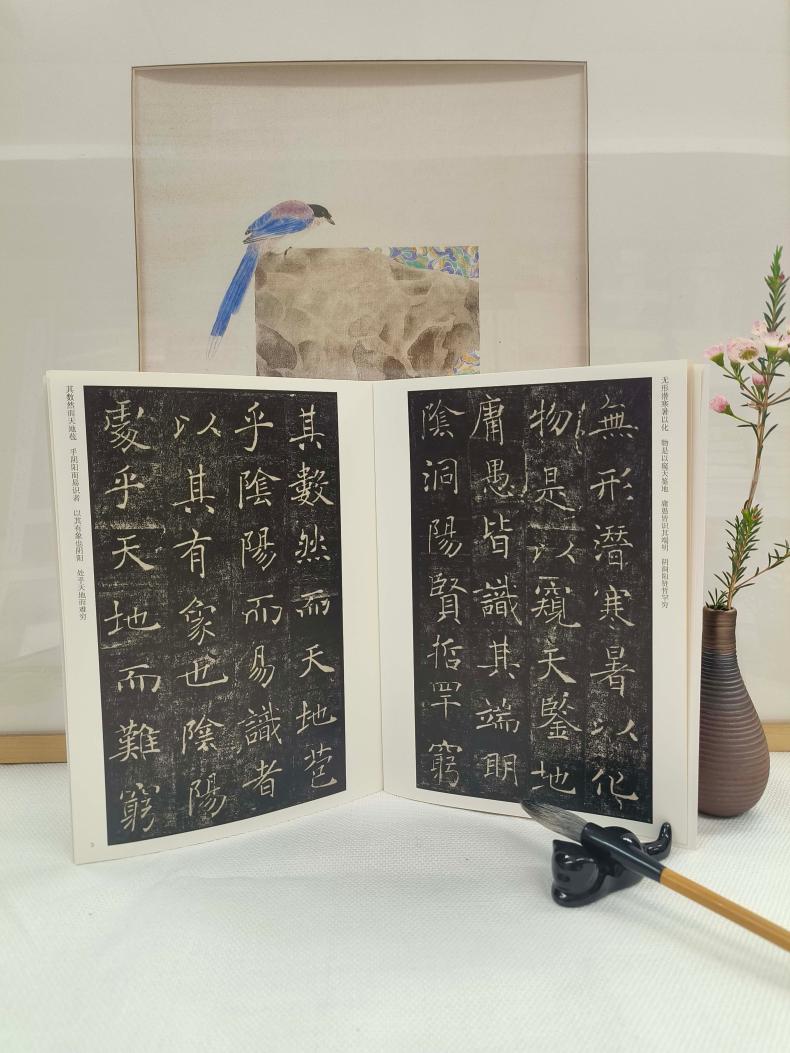 无形潜寒暑以化 物是以窥天鉴地 庸愚皆识其端明 阴洞阳贤哲罕穷
無形潛寒暑以化
物是以窺天鑒地
庸愚皆識其端明
陰洞陽賢哲罕窮
其數然而天地苞
乎陰陽而易識者
以其有象也陰陽
處乎天地而難窮
其数然而天地苞 乎阴阳而易识者 以其有象也阴阳 处乎天地而难穷
3